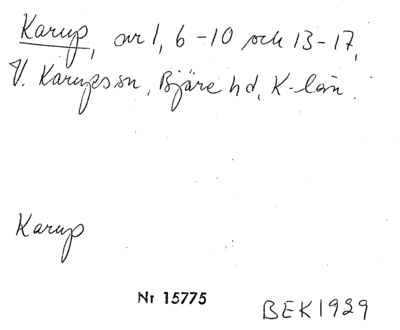 Karup, nr 1, 6-10 och 13-17,
V. Karups sn, Bjäre hd, K-län.
Karup
Nr 15775
BEK1929